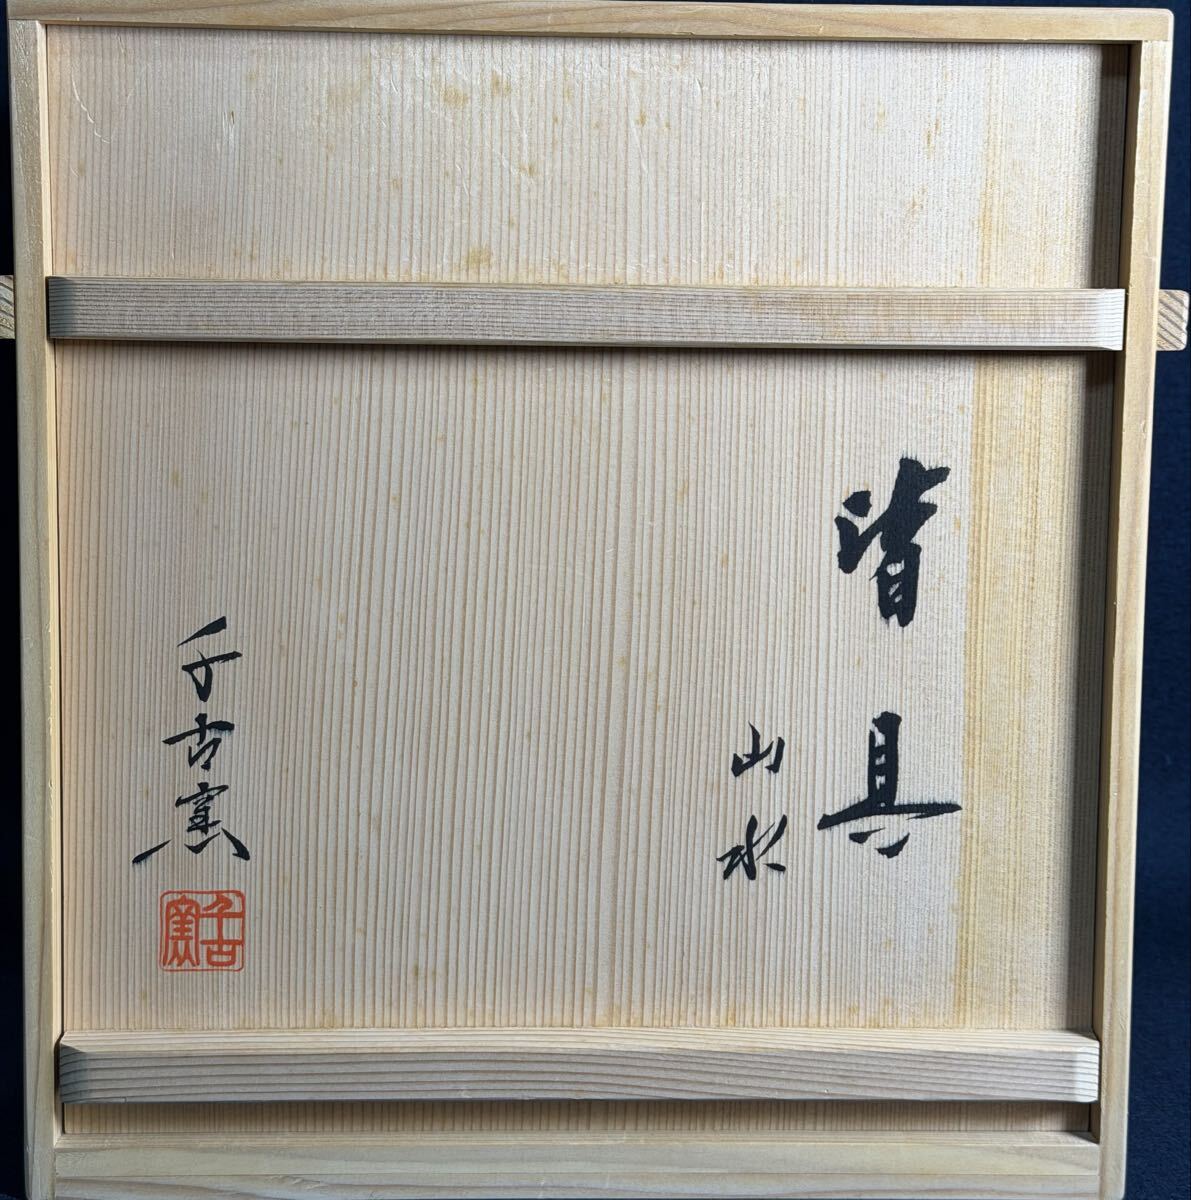 皆具
山水
千古窯
千古窯